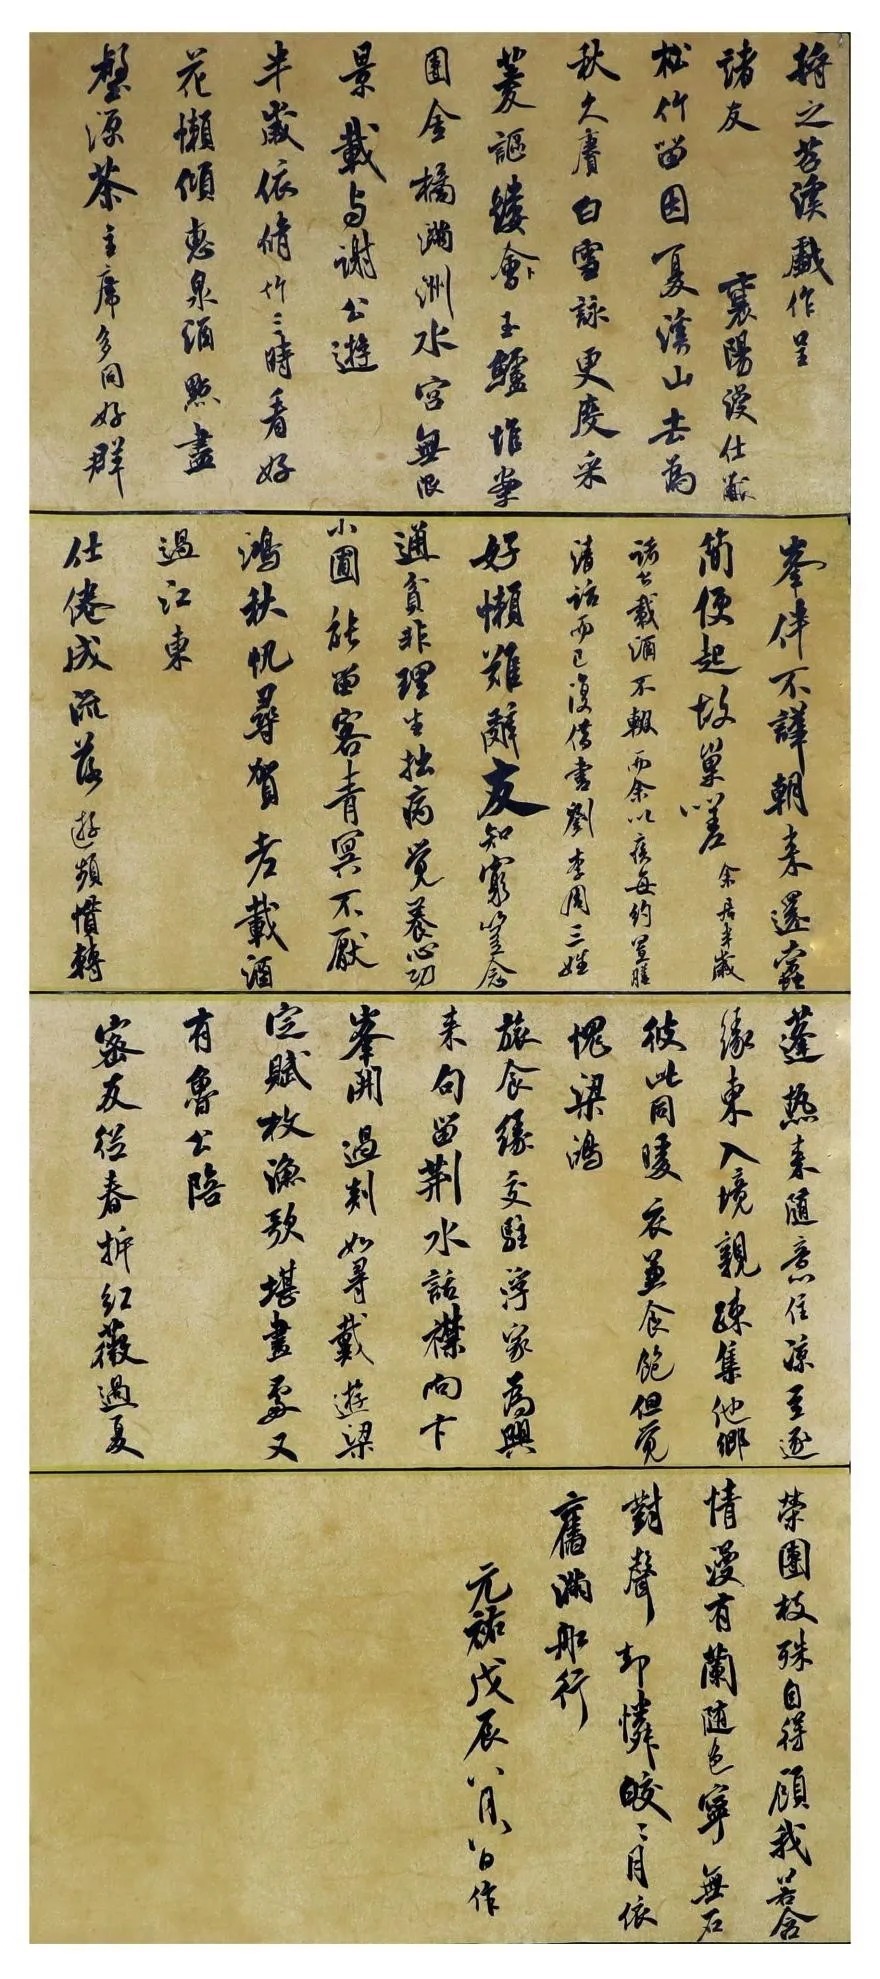 將之苕溪戲作呈
諸友 襄陽漫仕黻
松竹留因夏溪山去為
秋久賡白雪詠更度采
菱謳縷會玉鱸堆案
團金橘滿洲水宮無限
景載与謝公遊
半歲依脩竹三時看好
花懶傾惠泉酒點盡
壑源茶主席多同好群
峯伴不譁朝来還蠹
簡便起故巢嗟 余居半歲
諸公載酒不輟而余以疾每約置膳
清話而已復借書劉李周三姓
好懶難辭友知窮豈念
通貧非理生拙病覺養心功
小圃能留客青冥不厭
鴻秋帆尋賀老載酒
過江東
仕倦成流落遊頻慣轉
蓬熱来隨意住涼至逐
緣東入境親疎集他鄉
彼此同暖衣兼食飽但覺
愧梁鴻
旅食緣交駐浮家為興
来句留荊水話襟向卞
峯開過剡如尋戴遊梁
定賦枚漁歌堪畫處又
有魯公陪
密友從春拆紅薇過夏
榮團枝殊自得顧我若含
情漫有蘭随色寧無石
對聲却憐皎〻月依
舊滿船行
元祐戊辰八月八日作